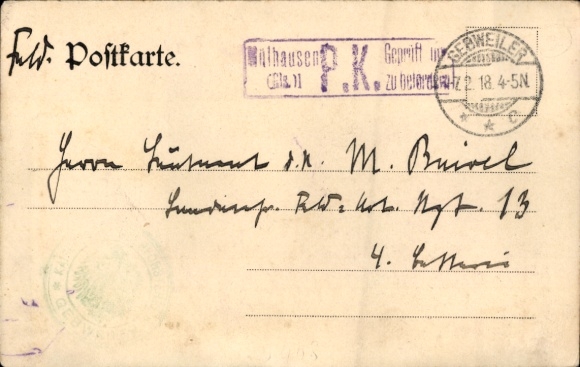 Feld- Postkarte.
Mülhausen P.K. Geprüft u.
(Els.)] zu befördern
GEBWEILER
2.18.4-5N.
* * c
Herrn Leutnant d. R. M.
Feld-Art. Rgt. 13
4. Batterie